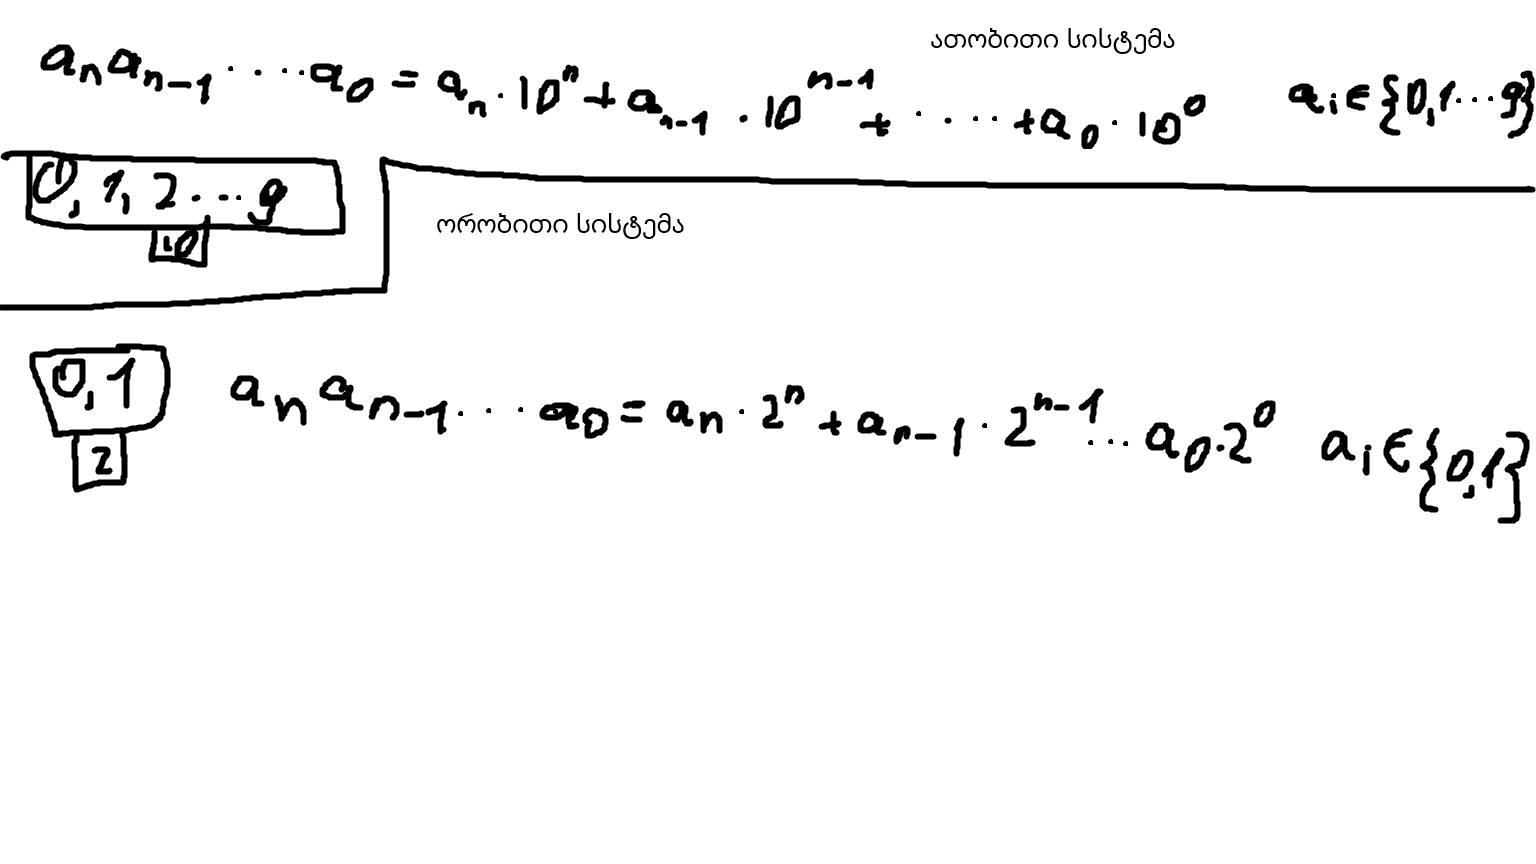 ათობითი სისტემა
aₙaₙ₋₁ ····a₀ = aₙ·10ⁿ + aₙ₋₁·10ⁿ⁻¹ + ···· + a₀·10⁰ aᵢ ∈ {0,1...9}
0, 1, 2 ... 9
10
ორობითი სისტემა
0,1
2
aₙaₙ₋₁ ··· a₀ = aₙ·2ⁿ + aₙ₋₁·2ⁿ⁻¹ ... a₀·2⁰ aᵢ ∈ {0,1}